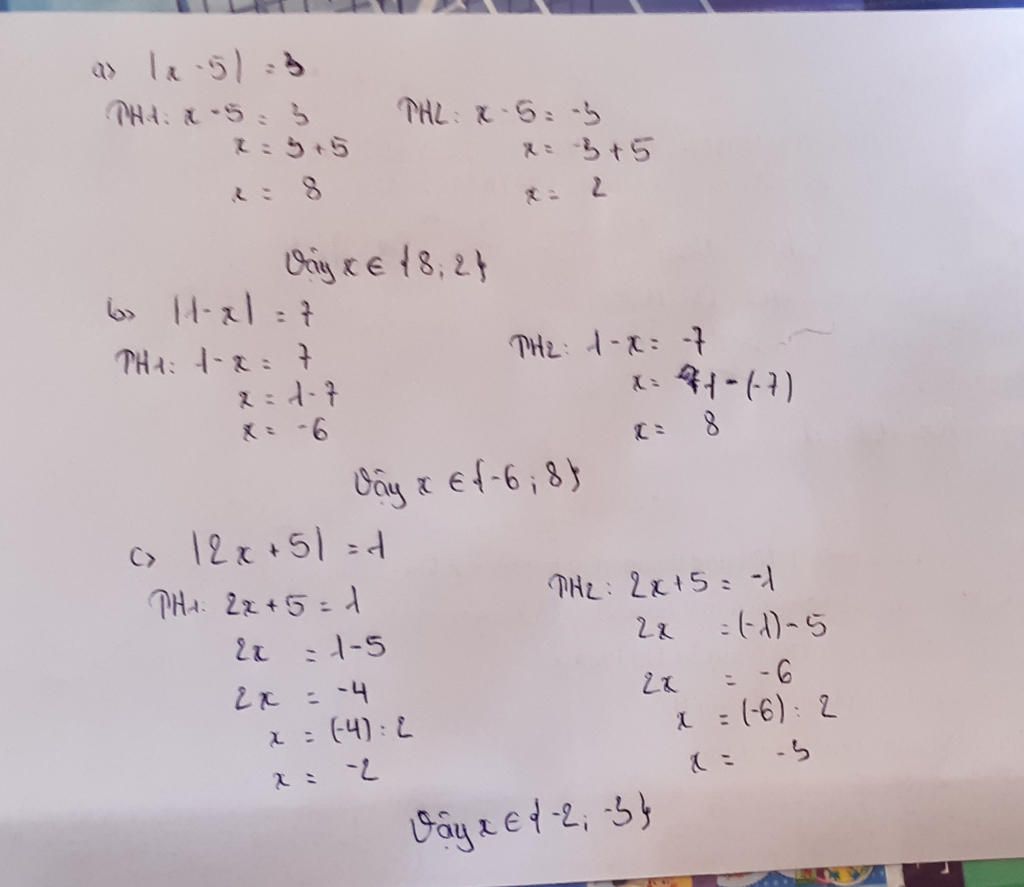 a) |x - 5| = 3
TH1: x - 5 = 3 TH2: x - 5 = -3
x = 3 + 5 x = -3 + 5
x = 8 x = 2
Vậy x ∈ {8; 2}
b) |1 - x| = 7
TH1: 1 - x = 7 TH2: 1 - x = -7
x = 1 - 7 x = 1 - (-7)
x = -6 x = 8
Vậy x ∈ {-6; 8}
c) |2x + 5| = 1
TH1: 2x + 5 = 1 TH2: 2x + 5 = -1
2x = 1 - 5 2x = (-1) - 5
2x = -4 2x = -6
x = (-4) : 2 x = (-6) : 2
x = -2 x = -3
Vậy x ∈ {-2; -3}